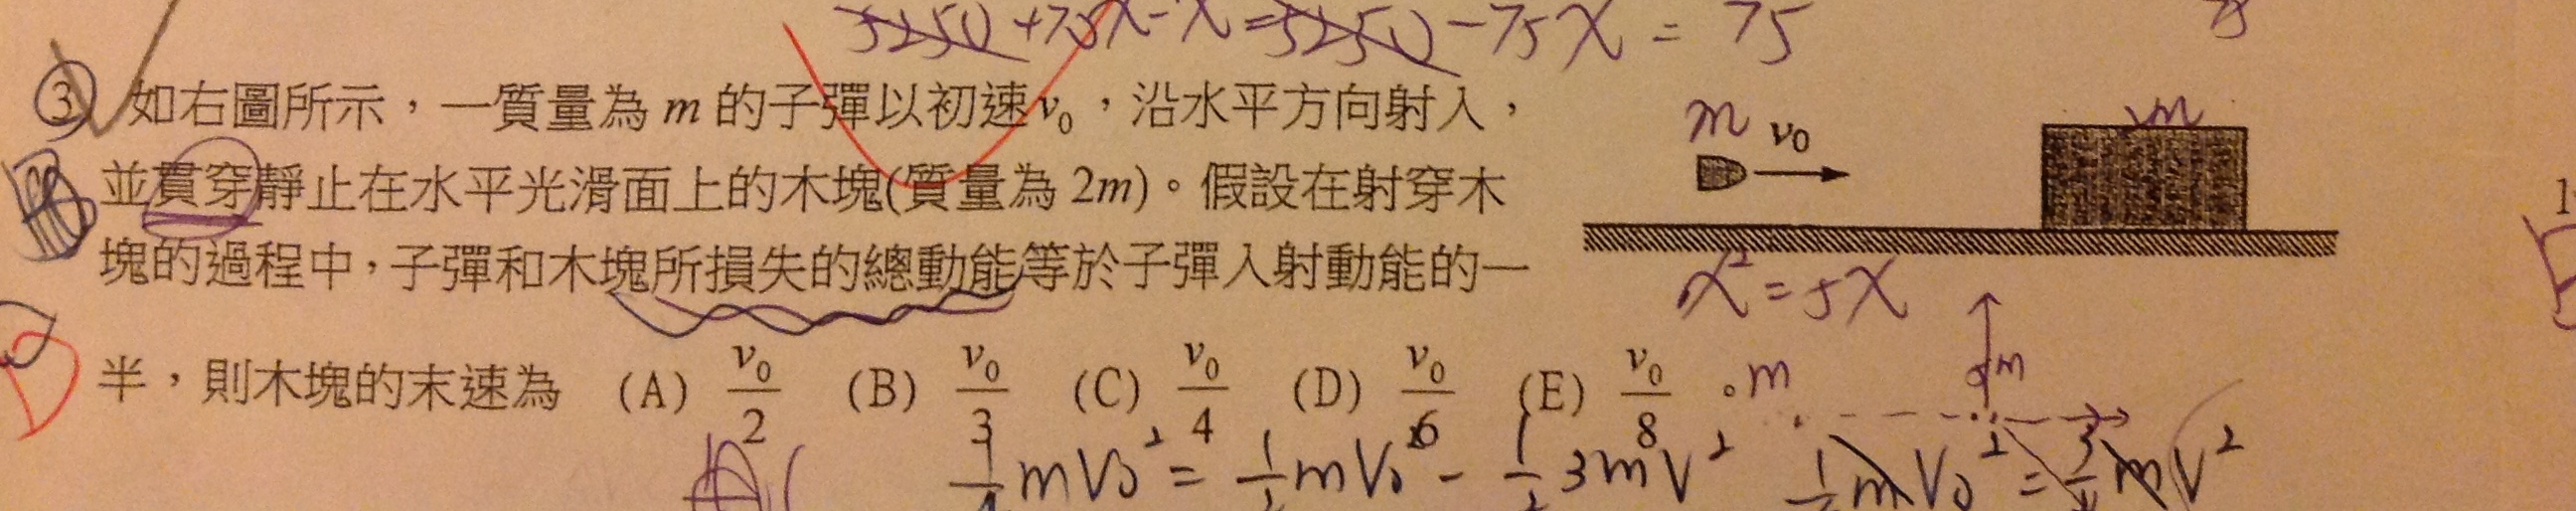 5250+75x-x=5250-75x = 75
③ 如右圖所示，一質量為 m 的子彈以初速 v₀，沿水平方向射入，
並貫穿靜止在水平光滑面上的木塊(質量為 2m)。假設在射穿木
塊的過程中，子彈和木塊所損失的總動能等於子彈入射動能的一
半，則木塊的末速為 (A) v₀/2 (B) v₀/3 (C) v₀/4 (D) v₀/6 (E) v₀/8 。
m
v₀
m
x²=5x
m
m
D
1/4 mV₀² = 1/2 mV₀² - 1/2 3mV²
V₀² = mV²